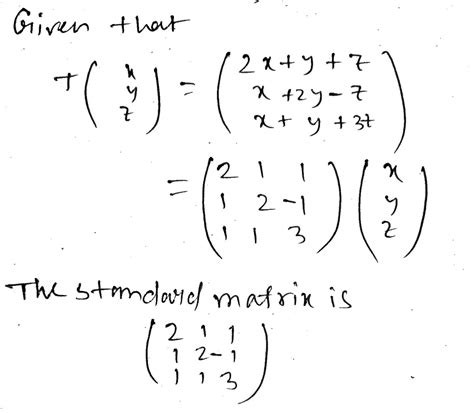 Given that
T(x y z) = (2x+y+z
x+2y-z
x+y+3z)
= (2 1 1
1 2 -1
1 1 3) (x y z)
The standard matrix is
(2 1 1
1 2 -1
1 1 3)